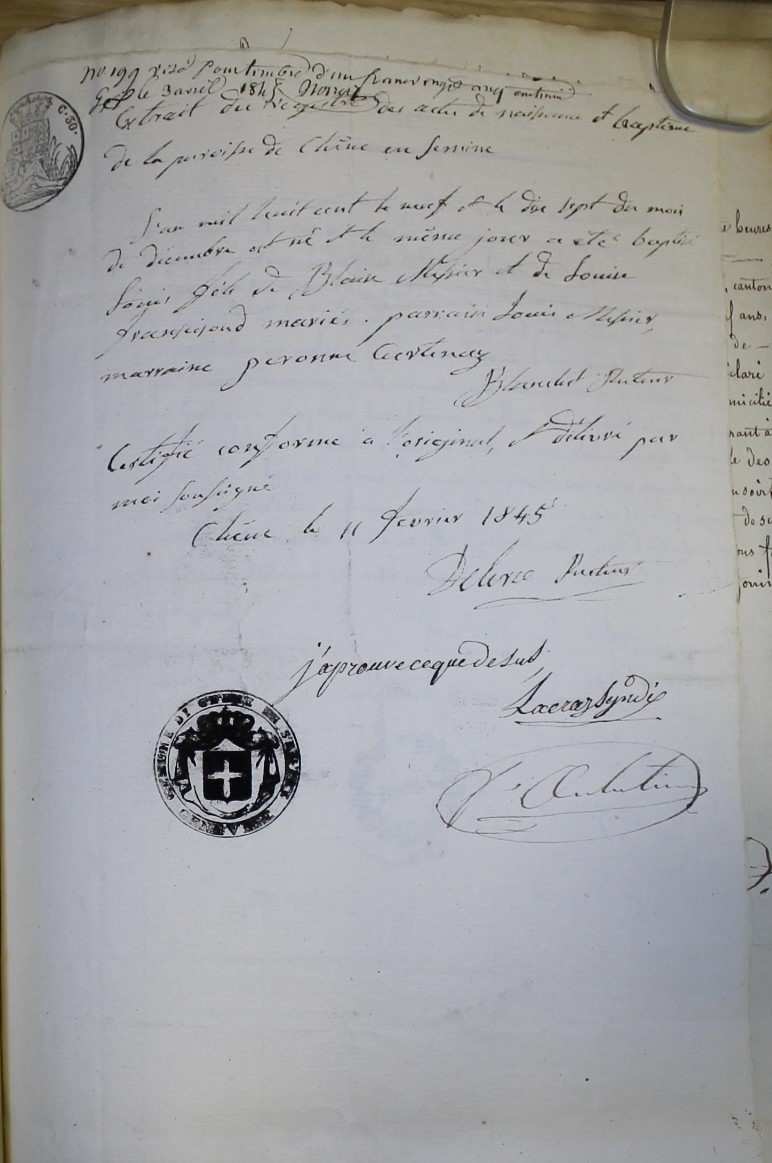 no 199 visé pour timbre d'un franc vingt cinq centimes
le 3 avril 1845
C. 50.
Extrait du registre des actes de naissance et baptême
de la paroisse de Chêne en Semine
L'an mil huit cent le neuf et le dix sept du mois
de décembre est né et le même jour a été baptisé
Louis, fils de Blaise Messier et de Louise
mariés. parrain Louis Messier,
marraine peronne
Blanchet Recteur
Certifié conforme à l'original, et délivré par
moi soussigné
Chêne le 11 fevrier 1845
Recteur
j'aprouve ce que desus
Lacraz Syndic
COMMUNE DI CHENE EN SEMINE
GENEVESE
heures
canton
f ans,
de —
claré
micilié
rant à
le des
soit
de se